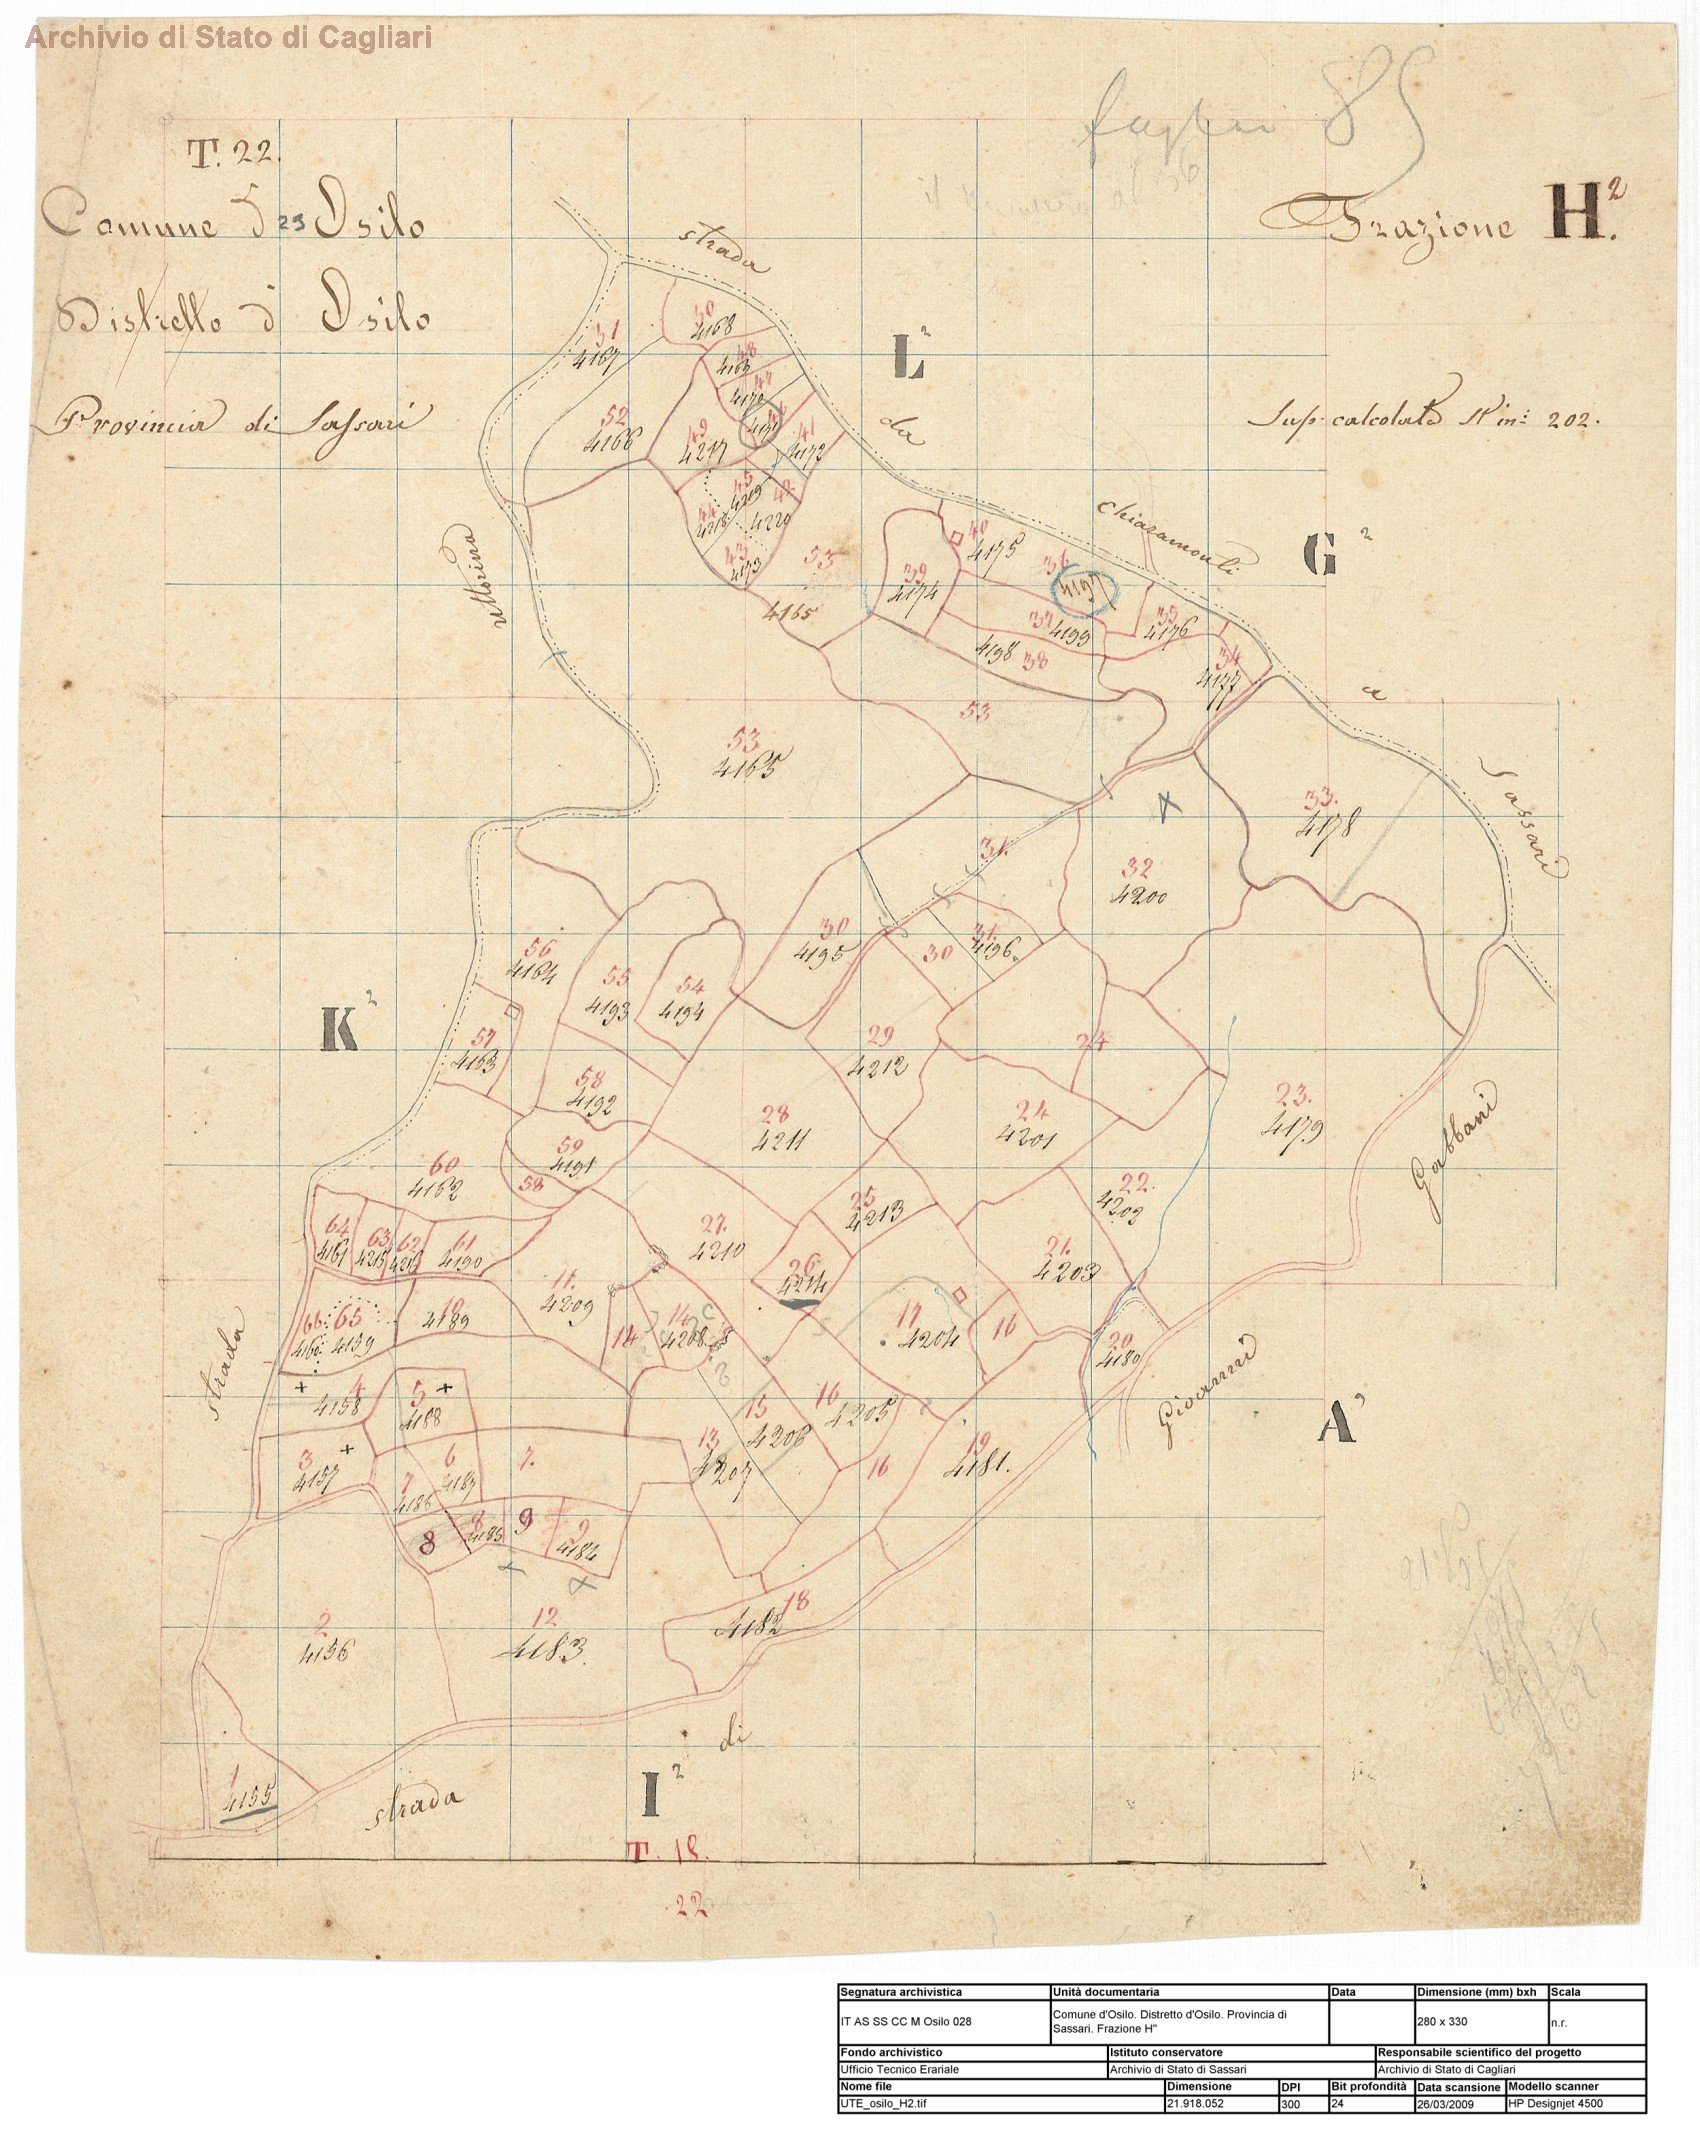 Archivio di Stato di Cagliari
85
T. 22.
Comune d' 23 Osilo
Frazione H².
Distretto d' Osilo
Provincia di Sassari
Sup. calcolata
202.
strada
L²
da
Chiaramonti
G²
a
Sassari
vittorina
K²
strada
Gabbani
Giovanni
A'
di
strada
I²
T. 18.
22
51
4167
50
4168
48
4169
47
4170
46
4171
41
4172
52
4166
49
4217
45
4219
42
4220
44
4218
43
4173
53
4165
40
4175
39
4174
36
4197
37
4199
4198 38
35
4176
34
4177
53
53
4165
33.
4178
31.
32
4200
30
4195
30
31.
4196.
56
4164
55
4193
54
4194
57
4163
29
4212
24
58
4192
28
4211
24
4201
23.
4179
59
4191
58
60
4162
22.
4202
25
4213
64
4161
63
4215
62
4216
61
4190
27.
4210
21.
4203
26
4214
11.
4209
66
4160
65
4159
10
4189
14
14
4208
17
4204
16
20
4180
4
4158
5
4188
16
4205
15
4206
13
4207
19
4181.
16
3
4157
6
4187
7.
7
4186
8
8
4185
9
9
4184
2
4156
12
4183.
18
4182
1
4155
Segnatura archivistica
Unità documentaria
Data
Dimensione (mm) bxh
Scala
IT AS SS CC M Osilo 028
Comune d'Osilo. Distretto d'Osilo. Provincia di
Sassari. Frazione H"
280 x 330
n.r.
Fondo archivistico
Istituto conservatore
Responsabile scientifico del progetto
Ufficio Tecnico Erariale
Archivio di Stato di Sassari
Archivio di Stato di Cagliari
Nome file
Dimensione
DPI
Bit profondità
Data scansione
Modello scanner
UTE_osilo_H2.tif
21.918.052
300
24
26/03/2009
HP Designjet 4500